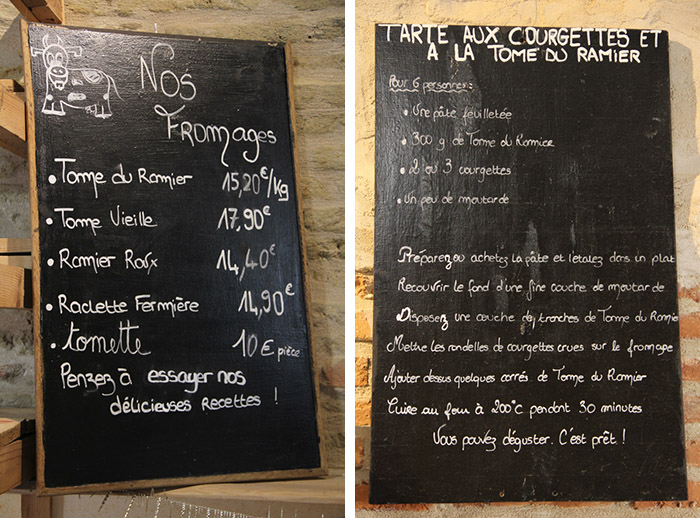 Nos
Fromages
• Tomme du Ramier 15,20€/kg
• Tomme Vieille 17,90€
• Ramier Roux 14,40€
• Raclette Fermière 14,90€
• tomette 10€ pièce
Penzez à essayer nos
délicieuses recettes !
TARTE AUX COURGETTES ET
A LA TOME DU RAMIER
Pour 6 personnes :
• Une pâte feuilletée
• 300 g de Tomme du Ramier
• 2 ou 3 courgettes
• Un peu de moutarde
Préparez ou achetez la pâte et l'etalez dans un plat
Recouvrir le fond d'une fine couche de moutarde
Disposez une couche de tranches de Tomme du Ramier
Mettre les rondelles de courgettes crues sur le fromage
Ajouter dessus quelques carrés de Tomme du Ramier
Cuire au four à 200°C pendant 30 minutes
Vous pouvez déguster. C'est prêt !